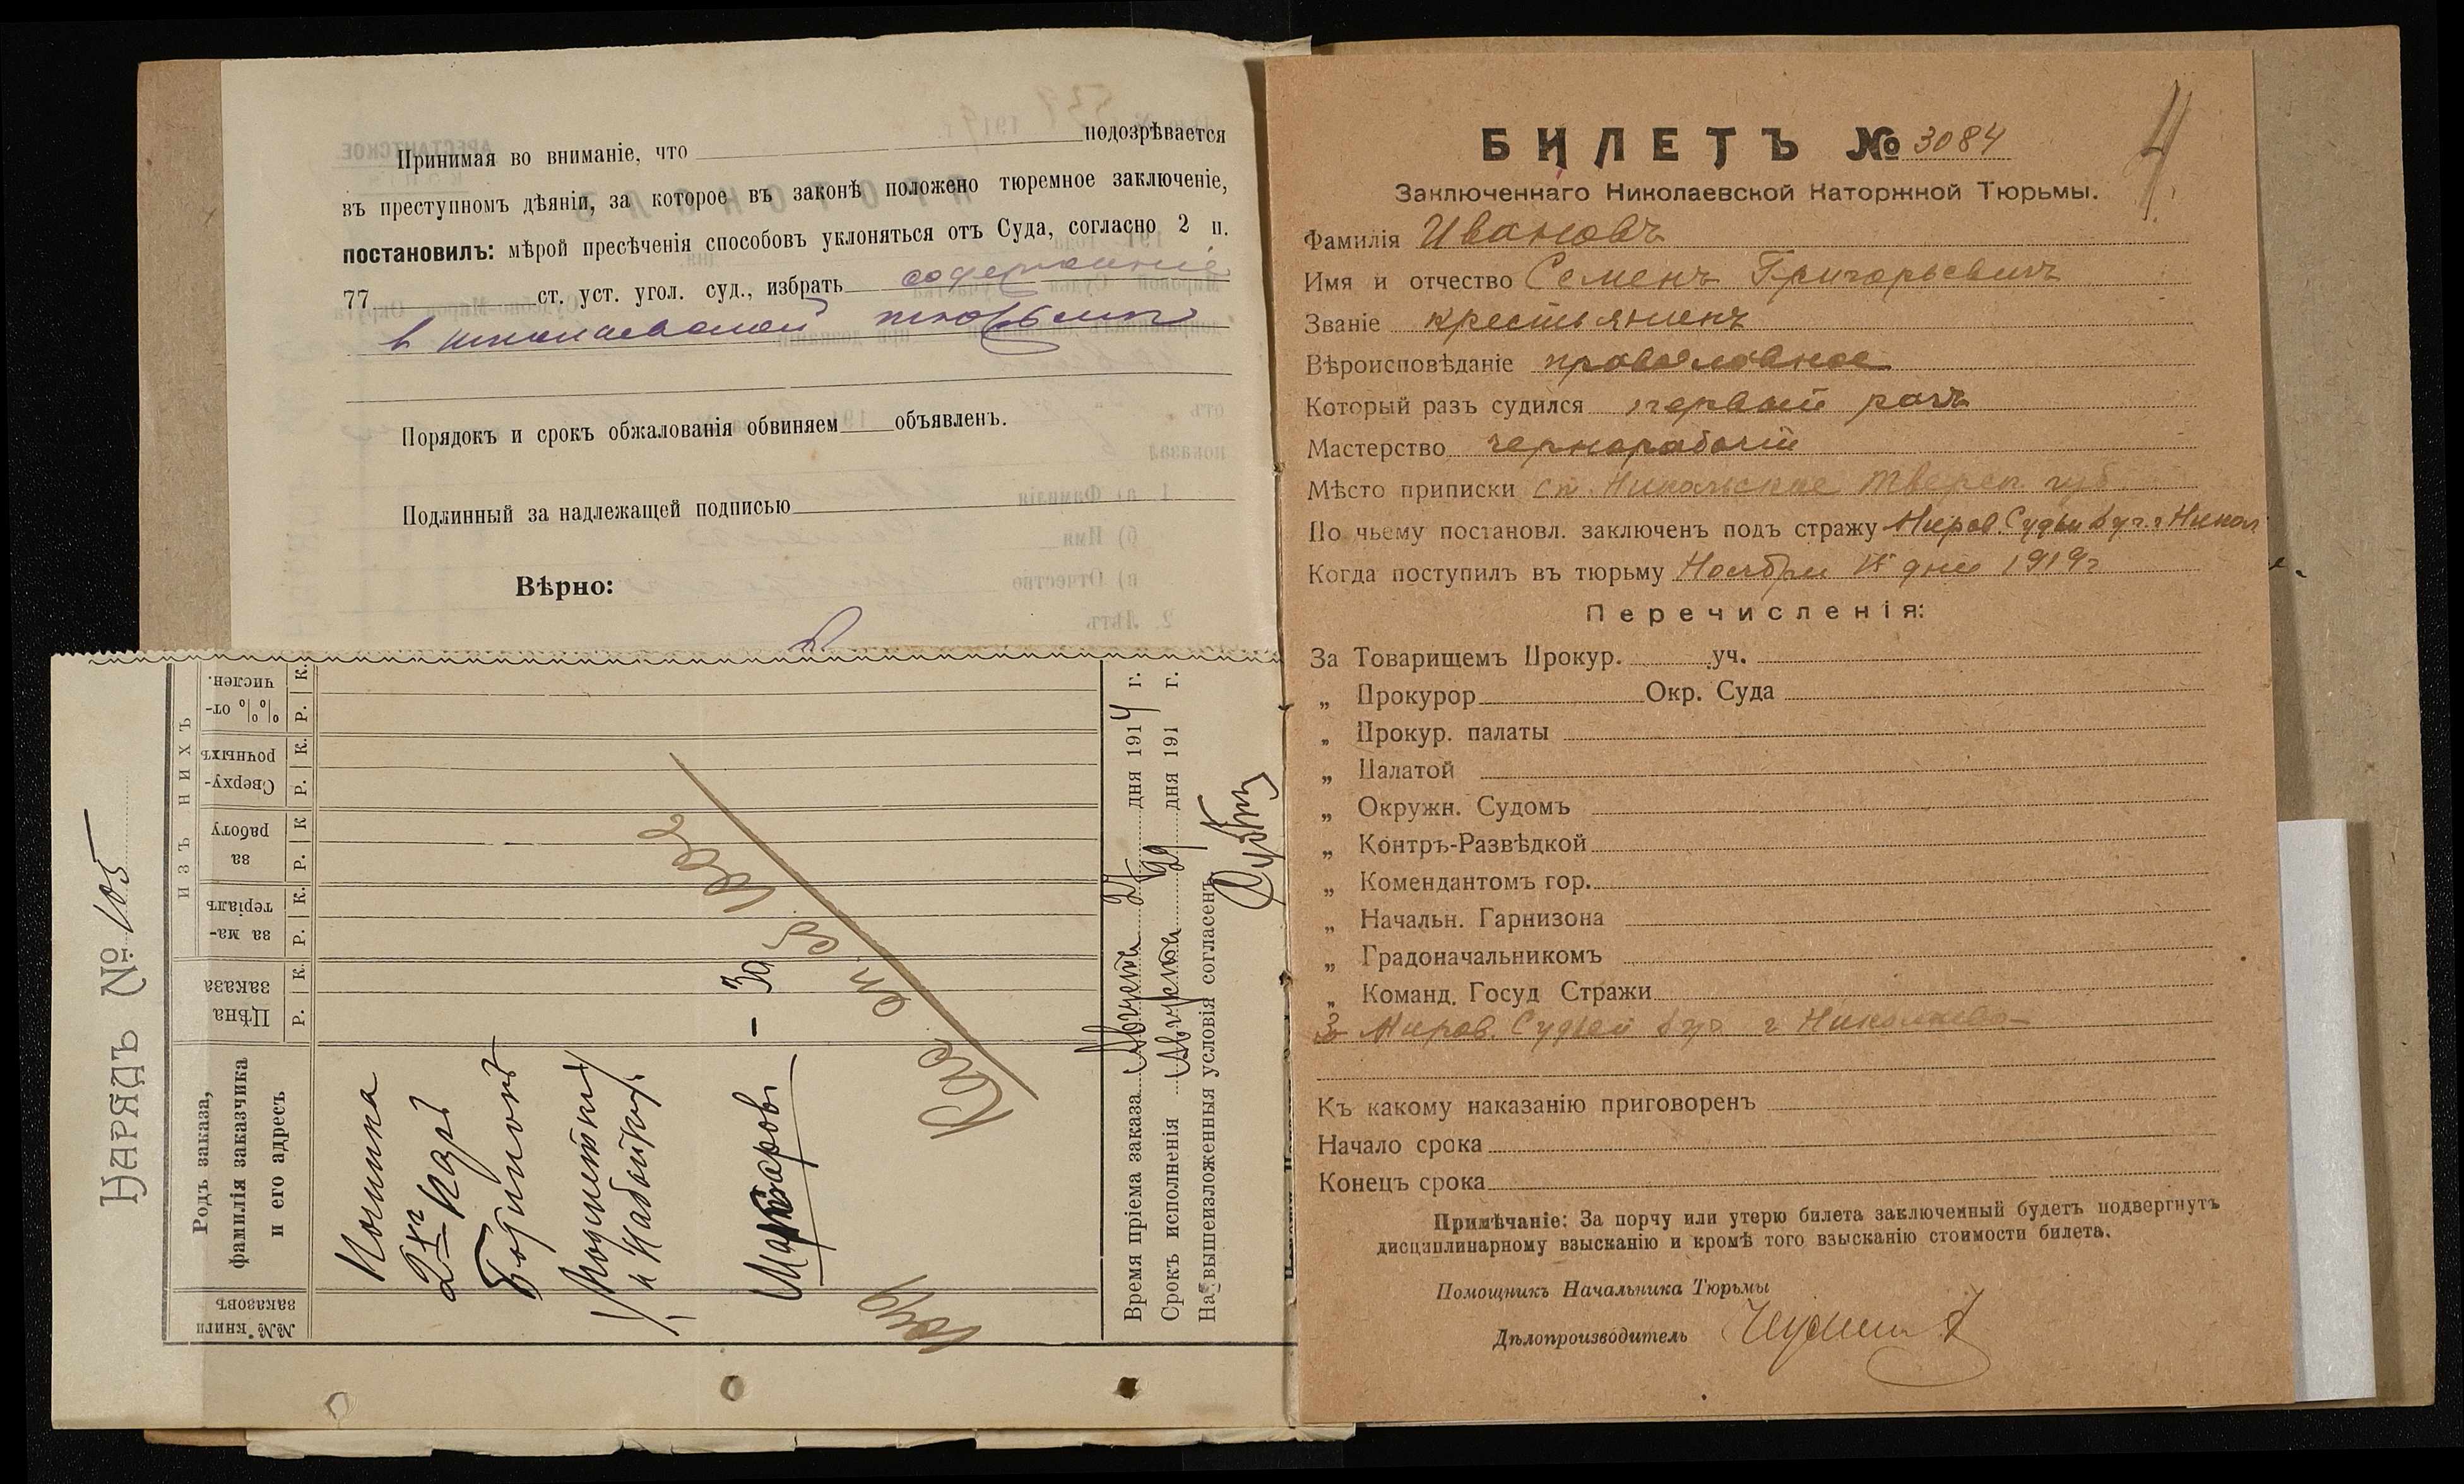 Принимая во вниманіе, что подозрѣвается
въ преступномъ дѣяніи, за которое въ законѣ положено тюремное заключеніе,
постановилъ: мѣрой пресѣченія способовъ уклоняться отъ Суда, согласно 2 п.
77 ст. уст. угол. суд., избрать содержаніе
в николаевской тюрьмѣ
Порядокъ и срокъ обжалованія обвиняем объявленъ.
Подлинный за надлежащей подписью
Вѣрно:
НАРЯДЪ № 105
№№ книги заказовъ
Родъ заказа,
фамилія заказчика
и его адресъ
Цѣна заказа
Р. К.
ИЗЪ НИХЪ
за матеріалъ
Р. К.
за работу
Р. К
Сверхурочныхъ
Р. К.
% % отчислен.
Р. К.
Починка
- 30
Время пріема заказа Августа 27 дня 1914 г.
Срокъ исполненія Августа 29 дня 191 г.
На вышеизложенныя условія согласенъ
4
БИЛЕТЪ № 3084
Заключеннаго Николаевской Каторжной Тюрьмы.
Фамилія Ивановъ
Имя и отчество Семенъ Григорьевичъ
Званіе крестьянинъ
Вѣроисповѣданіе православное
Который разъ судился первый разъ
Мастерство чернорабочій
Мѣсто приписки ст. Никольское Тверск. губ
По чьему постановл. заключенъ подъ стражу Миров. Судьи 6 уч. г Никол
Когда поступилъ въ тюрьму Ноября дня 1919 г
Перечисленія:
За Товарищемъ Прокур. уч.
„ Прокурор Окр. Суда
„ Прокур. палаты
„ Палатой
„ Окружн. Судомъ
„ Контръ-Развѣдкой
„ Комендантомъ гор.
„ Начальн. Гарнизона
„ Градоначальникомъ
„ Команд. Госуд Стражи
За Миров. Судьей 6 уч. г Николаева
Къ какому наказанію приговоренъ
Начало срока
Конецъ срока
Примѣчаніе: За порчу или утерю билета заключенный будетъ подвергнутъ
дисциплинарному взысканію и кромѣ того взысканію стоимости билета.
Помощникъ Начальника Тюрьмы
Дѣлопроизводитель